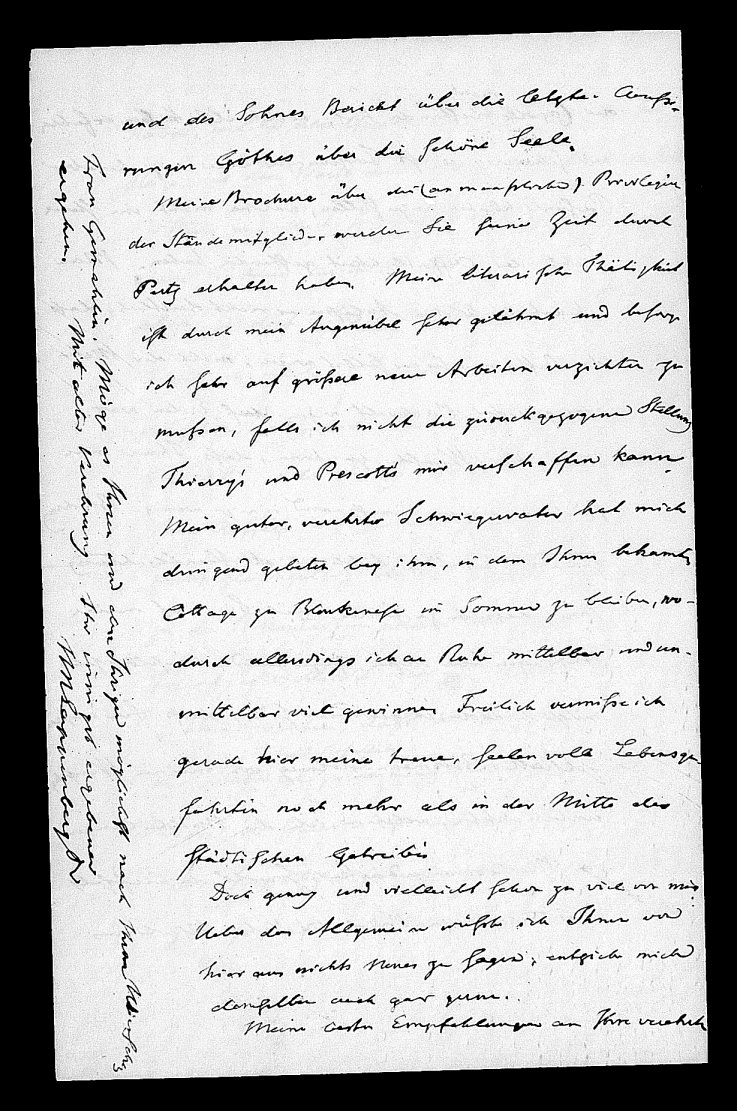 und des Sohnes Bericht über die letzten Äuße-
rungen Göthes über die schöne Seele.
Meine Brochure über die (anmaaßliche) Privilegien
der Ständemitglieder werden Sie seiner Zeit durch
Pertz erhalten haben. Meine literarische Thätigkeit
ist durch mein Augenübel sehr gelähmt und besorge
ich sehr auf größere neue Arbeiten verzichten zu
müssen, falls ich nicht die zurückgezogene Stellung
Thierry's und Prescott's mir verschaffen kann.
Mein guter, verehrter Schwiegervater hat mich
dringend gebeten bey ihm, in dem Ihnen bekannten
Cottage zu Blankenese im Sommer zu bleiben, wo-
durch allerdings ich an Ruhe mittelbar und un-
mittelbar viel gewinne. Freilich vermisse ich
gerade hier meine treue, seelenvolle Lebensge-
fährtin noch mehr als in der Mitte des
städtischen Getreibes
Doch genug und vielleicht schon zu viel von mir.
Ueber das Allgemeine wüßte ich Ihnen von
hier aus nichts Neues zu sagen; entziehe mich
demselben auch gar gerne.
Meine besten Empfehlungen an Ihre verehrte
Frau Gemahlin. Möge es Ihnen und den Ihrigen möglichst nach Ihren Wünschen
ergehen.
Mit alter Verehrung Ihr innigst ergebener
JMLappenberg Dr